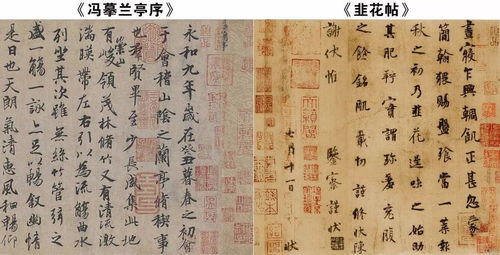 《冯摹兰亭序》
永和九年歲在癸丑暮春之初會
于會稽山陰之蘭亭脩稧事
也羣賢畢至少長咸集此地
有崇山峻領茂林脩竹又有清流激
湍暎帶左右引以為流觴曲水
列坐其次雖無絲竹管弦之
盛一觴一詠亦足以暢敘幽情
是日也天朗氣清惠風和暢仰
《韭花帖》
晝寢乍興輖飢正甚忽蒙
簡翰猥賜盤飧當一葉報
秋之初乃韭花逞味之始助
其肥羜實謂珍羞充腹
之餘銘肌載切謹修狀陳
謝伏惟
鑒察謹狀
七月十一日
狀